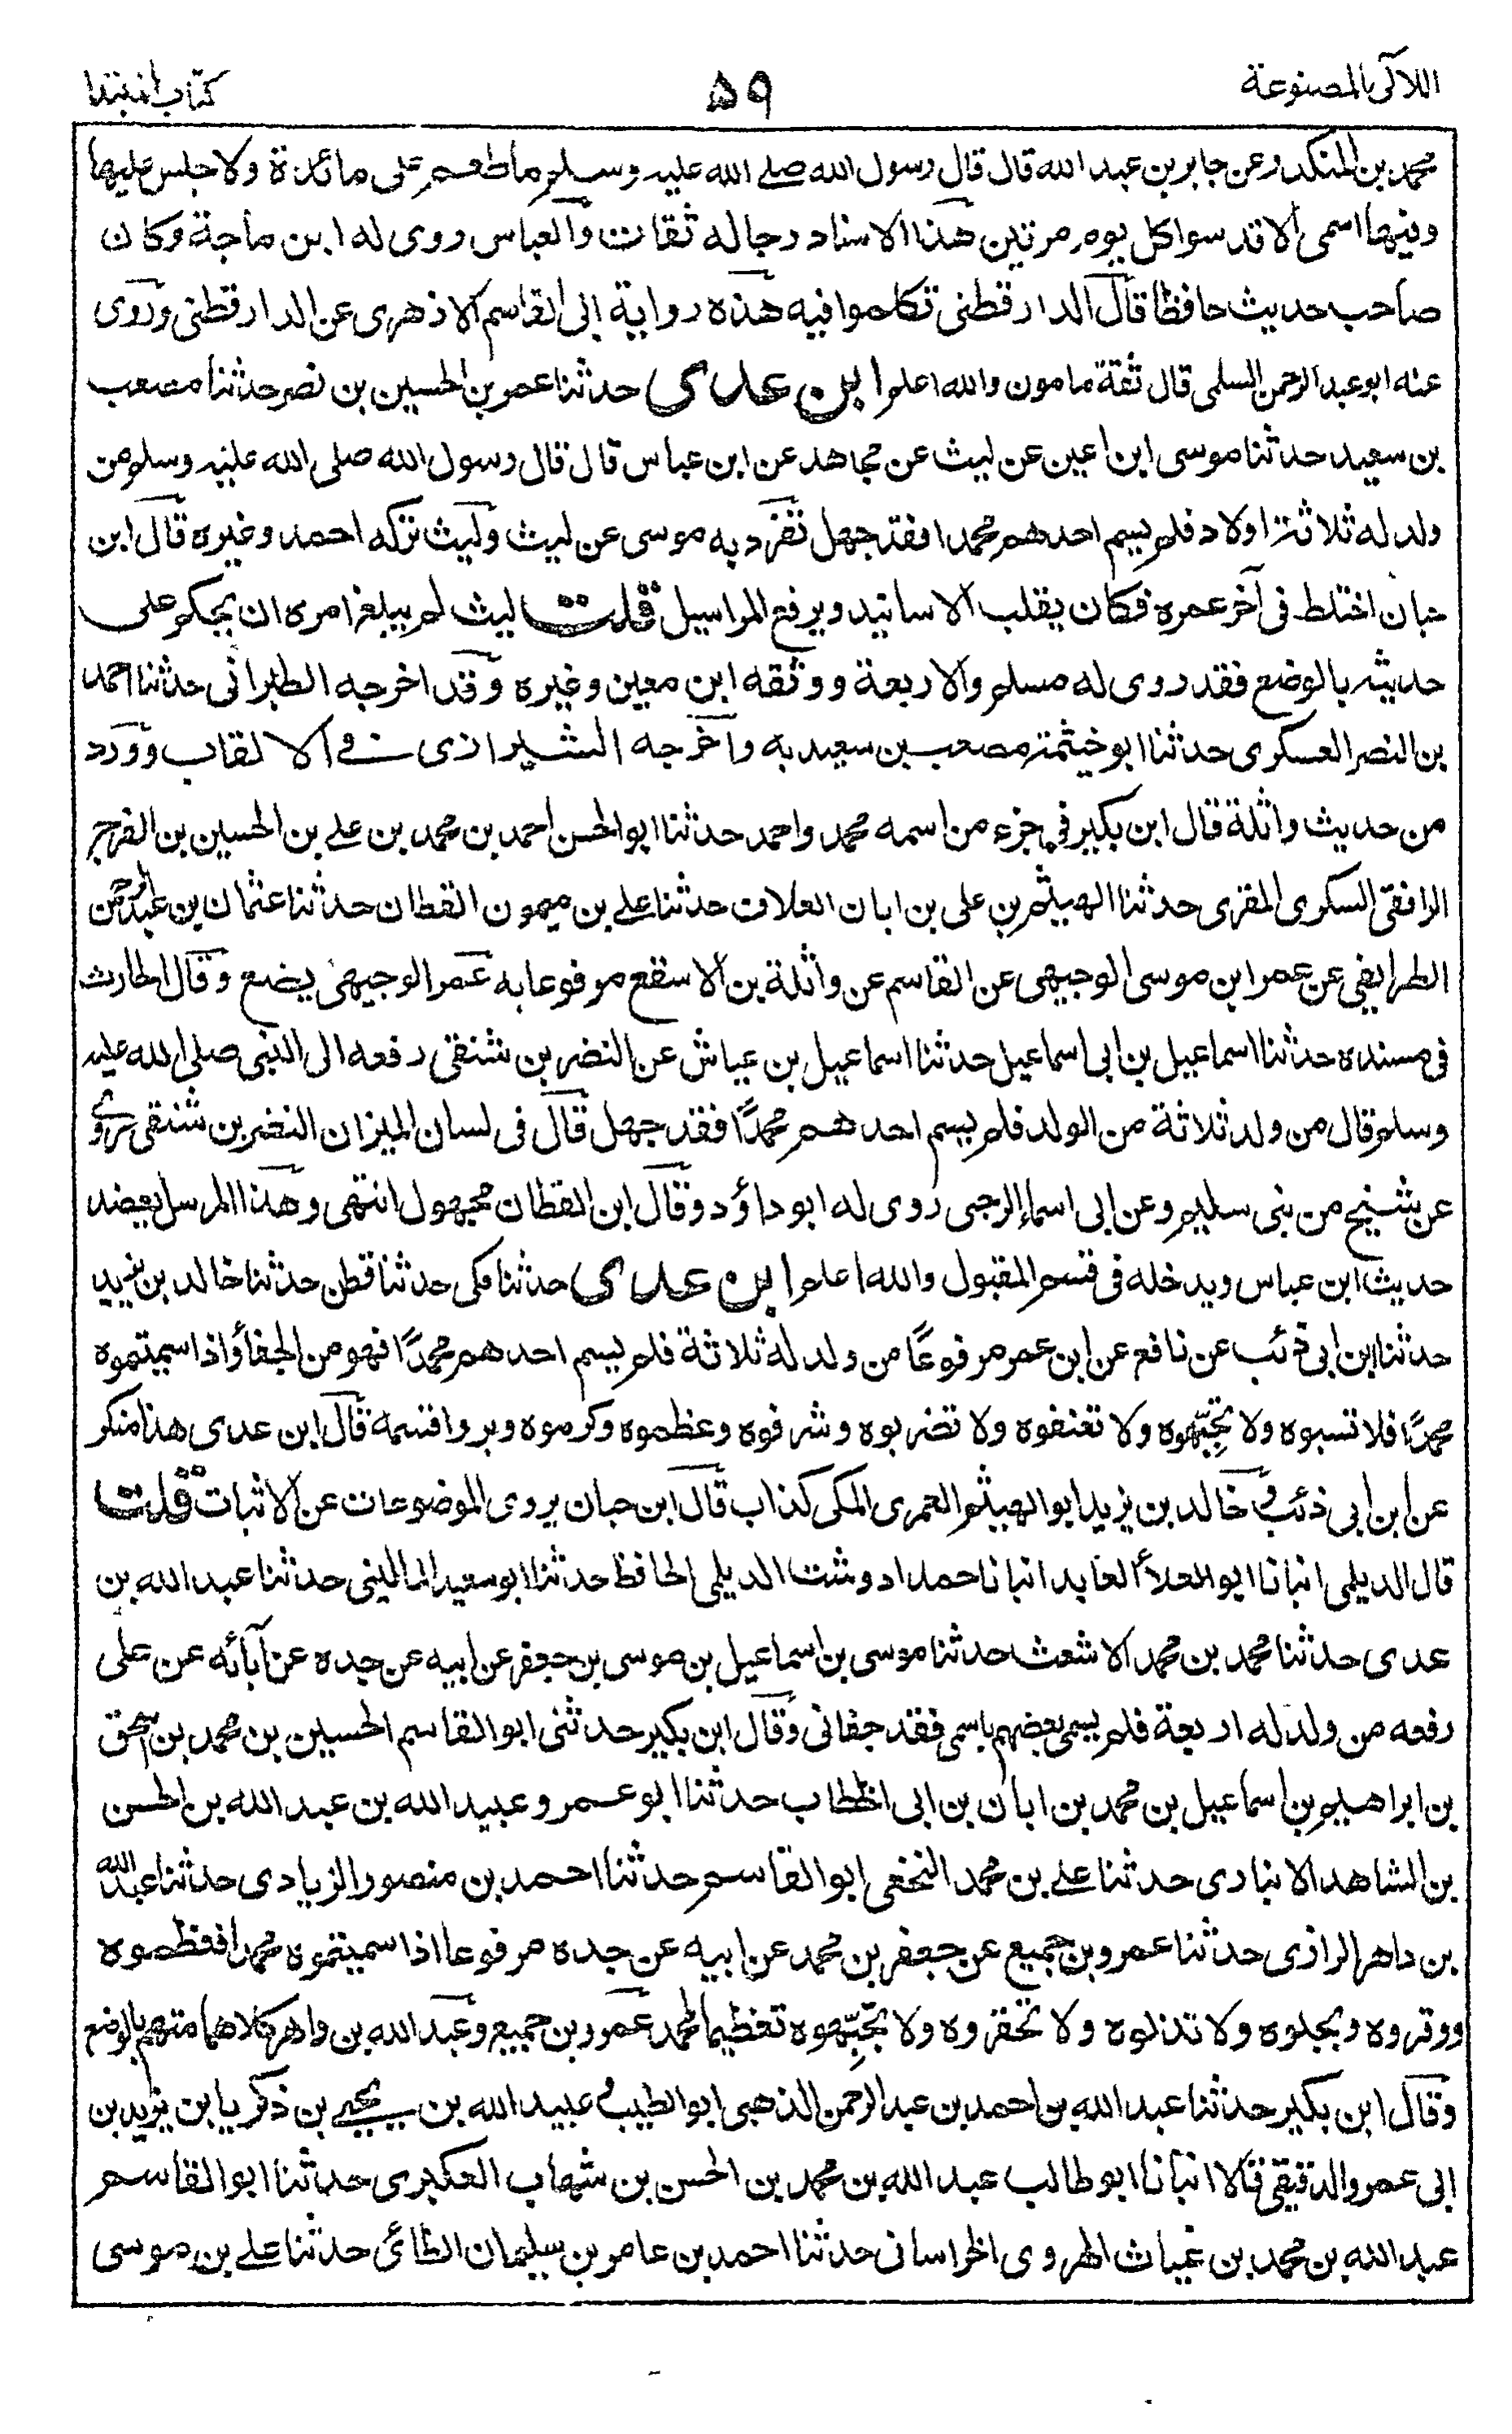 اللآلى المصنوعة
٥٩
كتاب المبتدا
محمد بن المنكدر عن جابر بن عبد الله قال قال رسول الله صلے الله عليه وسلم ما طعم على مائدة ولا جلس عليها
وفيها اسمى الا قد سوا كل يوم مرتين هذا الاسناد رجاله ثقات والعباس روى له ابن ماجة وكان
صاحب حديث حافظا قال الدارقطنى تكلموا فيه هذه رواية ابى القاسم الازهرى عن الدارقطنى وروى
عنه ابو عبد الرحمن السلمى قال ثقة مامون والله اعلم ابن عدى حدثنا عمر بن الحسين بن نصر حدثنا مصعب
بن سعيد حدثنا موسى ابن اعين عن ليث عن مجاهد عن ابن عباس قال قال رسول الله صلى الله عليه وسلم من
ولد له ثلاثة اولاد فلم يسم احدهم محمدا فقد جهل تفرد به موسى عن ليث وليث تركه احمد وغيره قال ابن
حبان اختلط فى آخر عمره فكان يقلب الاسانيد ويرفع المراسيل قلت ليث لم يبلغ امره ان يحكم على
حديثه بالوضع فقد روى له مسلم والاربعة ووثقه ابن معين وغيره وقد اخرجه الطبرانى حدثنا احمد
بن النصر العسكرى حدثنا ابو خيثمة مصعب بن سعيد به واخرجه الشيرازى فے الالقاب وورد
من حديث واثلة قال ابن بكير فى جزء من اسمه محمد واحمد حدثنا ابو الحسن احمد بن محمد بن علے بن الحسين بن الفرج
الرافقى السكرى المقرى حدثنا الهيثم بن على بن ابان العلاف حدثنا علے بن ميمون القطان حدثنا عثمان بن عبد الرحمن
الطرايفي عن عمر ابن موسى الوجيهى عن القاسم عن واثلة بن الاسقع مرفوعا به عمر الوجيهى يضع وقال الحارث
فى مسنده حدثنا اسماعيل بن ابى اسماعيل حدثنا اسماعيل بن عياش عن النضر بن شنقى رفعه الى النبى صلى الله عليه
وسلم قال من ولد ثلاثة من الولد فلم يسم احدهم محمدًا فقد جهل قال فى لسان الميزان النضر بن شنقى يروى
عن شيخ من بنى سليم وعن ابى اسماء الرحبى روى له ابو داؤد وقال ابن القطان مجهول انتهى وهذا المرسل يعضد
حديث ابن عباس ويدخله فى قسم المقبول والله اعلم ابن عدى حدثنا مكى حدثنا قطن حدثنا خالد بن يزيد
حدثنا ابن ابى ذئب عن نافع عن ابن عمر مرفوعًا من ولد له ثلاثة فلم يسم احدهم محمدًا فهو من الجفاؤ اذا سميتموه
محمدًا فلا تسبوه ولا تجبّهوه ولا تعنفوه ولا تضربوه وشرفوه وعظموه وكرموه وبروا قسمه قال ابن عدى هذا منكر
عن ابن ابى ذئب وخالد بن يزيد ابو الهيثم العمرى المكى كذاب قال ابن حبان يروى الموضوعات عن الاثبات قلت
قال الديلمى انبانا ابو العلاء العابد انبانا احمد ادوشت الديلمى الحافظ حدثنا ابو سعيد المالينى حدثنا عبد الله بن
عدى حدثنا محمد بن محمد الاشعث حدثنا موسى بن اسماعيل بن موسى بن جعفر عن ابيه عن جده عن آبائه عن على
رفعه من ولد له اربعة فلم يسمى بعضهم باسمى فقد جفانى وقال ابن بكير حدثنى ابو القاسم الحسين بن محمد بن اسحق
بن ابراهيم بن اسماعيل بن محمد بن ابان بن ابى الخطاب حدثنا ابو عمرو عبيد الله بن عبد الله بن الحسن
بن الشاهد الانبارى حدثنا علے بن محمد النخعى ابو القاسم حدثنا احمد بن منصور الزيادى حدثنا عبد الله
بن داهر الرازى حدثنا عمرو بن جميع عن جعفر بن محمد عن ابيه عن جده مرفوعا اذا سميتموه محمدا فعظموه
ووقروه وبجلوه ولا تذلوه ولا تحقروه ولا تجبّهوه تعظيما لمحمد عمرو بن جميع وعبد الله بن داهر كلاهما متهم بالوضع
وقال ابن بكير حدثنا عبد الله بن احمد بن عبد الرحمن الذهبى ابو الطيب وعبيد الله بن يحيے بن ذكريا ابن يزيد بن
ابى عمرو الدقيقى قالا انبانا ابو طالب عبد الله بن محمد بن الحسن بن شهاب العكبرى حدثنا ابو القاسم
عبد الله بن محمد بن غياث الهروى الخراسانى حدثنا احمد بن عامر بن سليمان الطائى حدثنا علے بن موسى